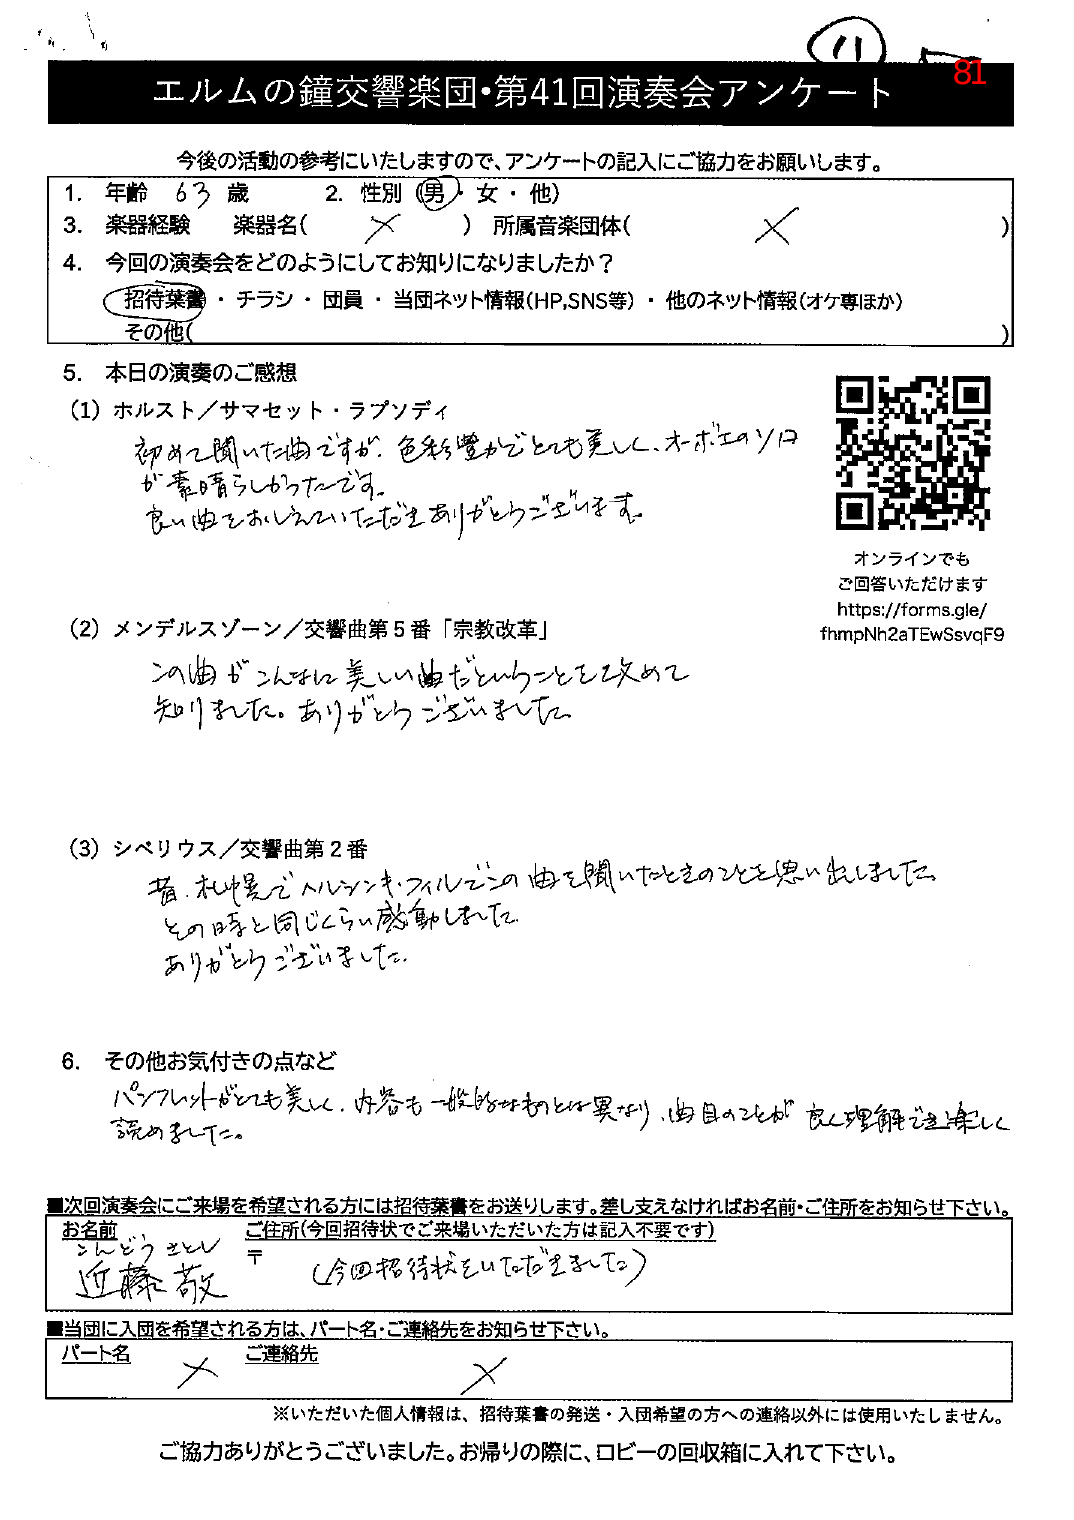 11
81
エルムの鐘交響楽団・第41回演奏会アンケート
今後の活動の参考にいたしますので、アンケートの記入にご協力をお願いします。
1. 年齢 63 歳 2. 性別 (男・女・他)
3. 楽器経験 楽器名( × ) 所属音楽団体( × )
4. 今回の演奏会をどのようにしてお知りになりましたか？
招待葉書・チラシ・団員・当団ネット情報(HP,SNS等)・他のネット情報(オケ専ほか)
その他( )
5. 本日の演奏のご感想
(1) ホルスト／サマセット・ラプソディ
初めて聞いた曲ですが、色彩豊かでとても美しく、オーボエのソロ
が素晴らしかったです。
良い曲をおしえていただきありがとうございます。
オンラインでも
ご回答いただけます
https://forms.gle/
fhmpNh2aTEwSsvqF9
(2) メンデルスゾーン／交響曲第５番「宗教改革」
この曲がこんなに美しい曲だということを改めて
知りました。ありがとうございました。
(3) シベリウス／交響曲第２番
昔、札幌でヘルシンキ・フィルでこの曲を聞いたときのことを思い出しました。
その時と同じくらい感動しました。
ありがとうございました。
6. その他お気付きの点など
パンフレットがとても美しく、内容も一般的なものとは異なり、曲目のことが良く理解でき楽しく
読めました。
■次回演奏会にご来場を希望される方には招待葉書をお送りします。差し支えなければお名前・ご住所をお知らせ下さい。
お名前 ご住所(今回招待状でご来場いただいた方は記入不要です)
こんどうさとし
近藤敬 〒 (今回招待状をいただきました)
■当団に入団を希望される方は、パート名・ご連絡先をお知らせ下さい。
パート名 × ご連絡先 ×
※いただいた個人情報は、招待葉書の発送・入団希望の方への連絡以外には使用いたしません。
ご協力ありがとうございました。お帰りの際に、ロビーの回収箱に入れて下さい。